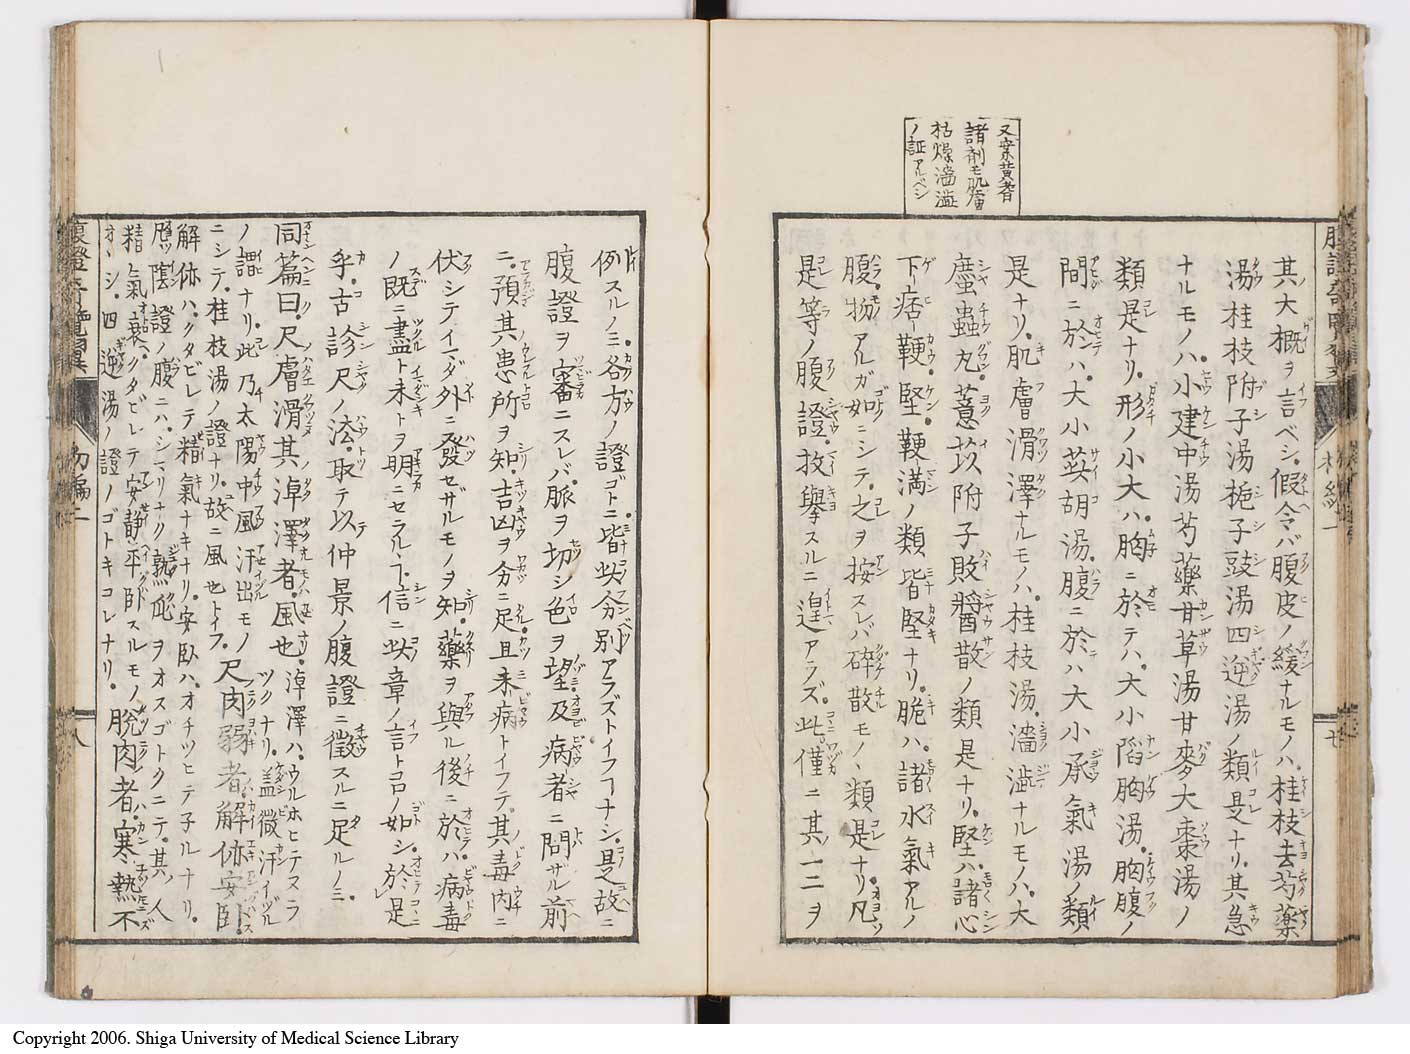 又案黄耆
諸剤モ肌膚
枯燥濇澁
ノ証アルベシ
其大概ヲ言ベシ假令バ腹皮ノ緩ナルモノハ桂枝去芍藥
湯桂枝附子湯梔子豉湯四逆湯ノ類是ナリ其急
ナルモノハ小建中湯芍藥甘草湯甘麥大棗湯ノ
類是ナリ形ノ小大ハ胸ニ於テハ大小陷胸湯胸腹ノ
間ニ於ハ大小茈胡湯腹ニ於ハ大小承氣湯ノ類
是ナリ肌膚滑澤ナルモノハ桂枝湯濇澁ナルモノハ大
䗪蟲丸薏苡附子敗醬散ノ類是ナリ堅ハ諸心
下痞鞕堅鞕満ノ類皆堅ナリ脆ハ諸水氣アルノ
腹物アルガ如ニシテ之ヲ按スレバ碎散モノヽ類是ナリ凡ソ
是等ノ腹證枚擧スルニ遑アラズ此僅ニ其一二ヲ
例スルノミ各方ノ證ゴトニ皆此分別アラズトイフヿナシ是故ニ
腹證ヲ審ニスレバ脈ヲ切シ色ヲ望及病者ニ問ザル前
ニ預其患所ヲ知吉凶ヲ分ニ足且未病トイフテ其毒内ニ
伏シテイマダ外ニ發セザルモノヲ知藥ヲ與ル後ニ於ハ病毒
ノ既ニ盡ト未トヲ明ニセラルヽヿ信ニ此章ノ言トコロノ如シ於是
乎古診尺ノ法取テ以仲景ノ腹證ニ徴スルニ足ルノミ
同篇曰尺膚滑其淖澤者風也淖澤ハウルホヒテヌラ
ツクナリ盖微汗イヅル
ノ謂ナリ此乃太陽中風汗出モノ
ニシテ桂枝湯ノ證ナリ故ニ風也トイフ尺肉弱者解㑊安卧
解㑊ハクタビレテ精氣ナキナリ安臥ハオチツヒテ子ルナリ
應ソ陰證ノ腹ニハシマリナク熟瓜ヲオスゴトクニテ其人
精氣衰クタビレテ安静平卧スルモノ
オヽシ四逆湯ノ證ノゴトキコレナリ脱肉者寒熱不
腹證奇覽翼
初編二
八
七